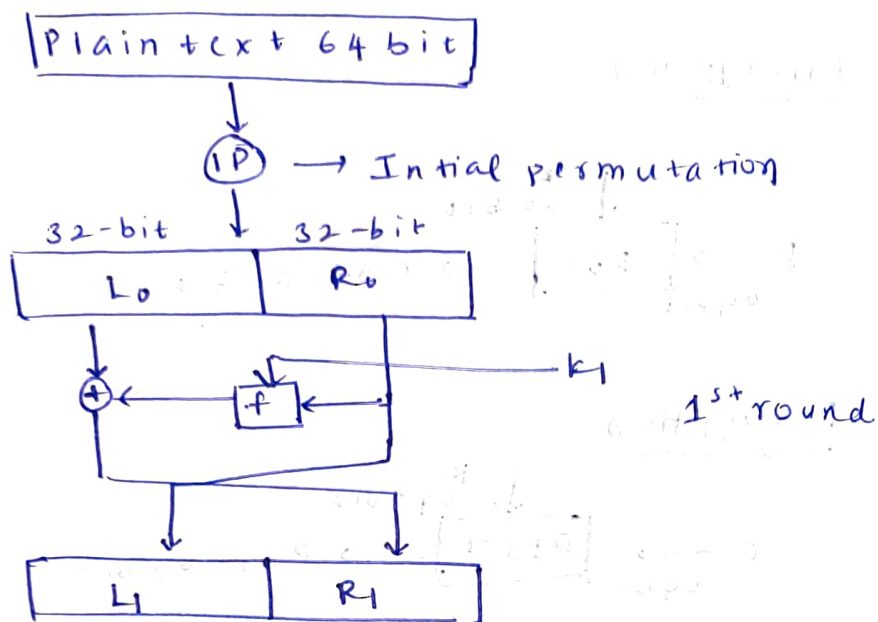 Plain text 64 bit
IP → Intial permutation
32-bit 32-bit
L₀ R₀
+ f k1
1st round
L1 R1